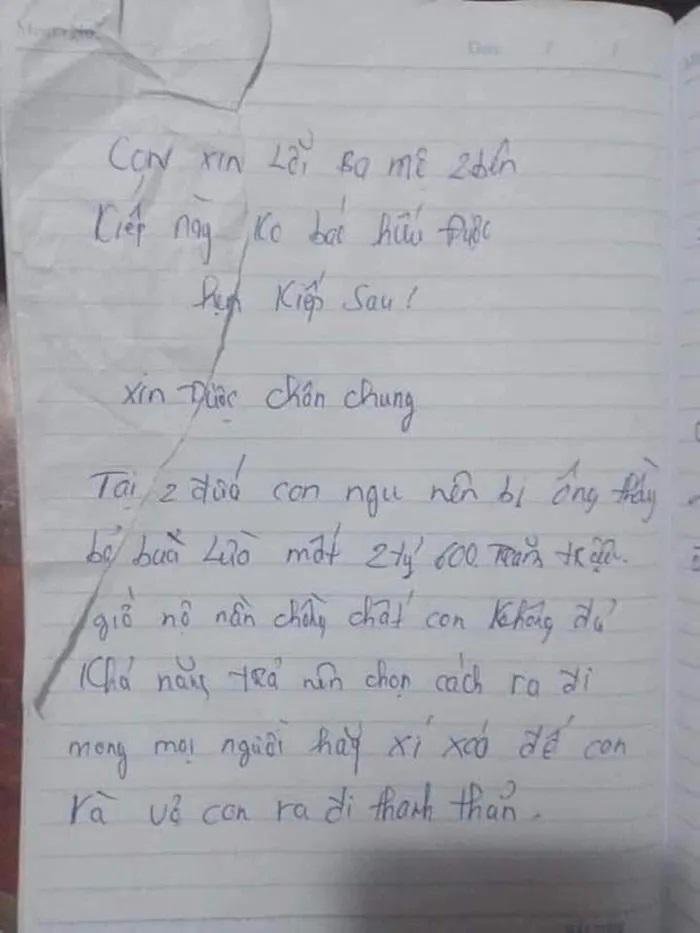 Con xin Lỗi Ba mẹ 2 bên
Kiếp này Ko báo hiếu Được
hẹn Kiếp Sau!
xin Được chôn chung
Tại 2 đứa con ngu nên bị ông thầy
bỏ buà Lừa mất 2 tỷ 600 trăm triệu.
giờ nợ nần chồng chất con không đủ
Khả năng trả nên chọn cách ra đi
mong mọi người hãy xí xoá để con
và vợ con ra đi thanh thản.